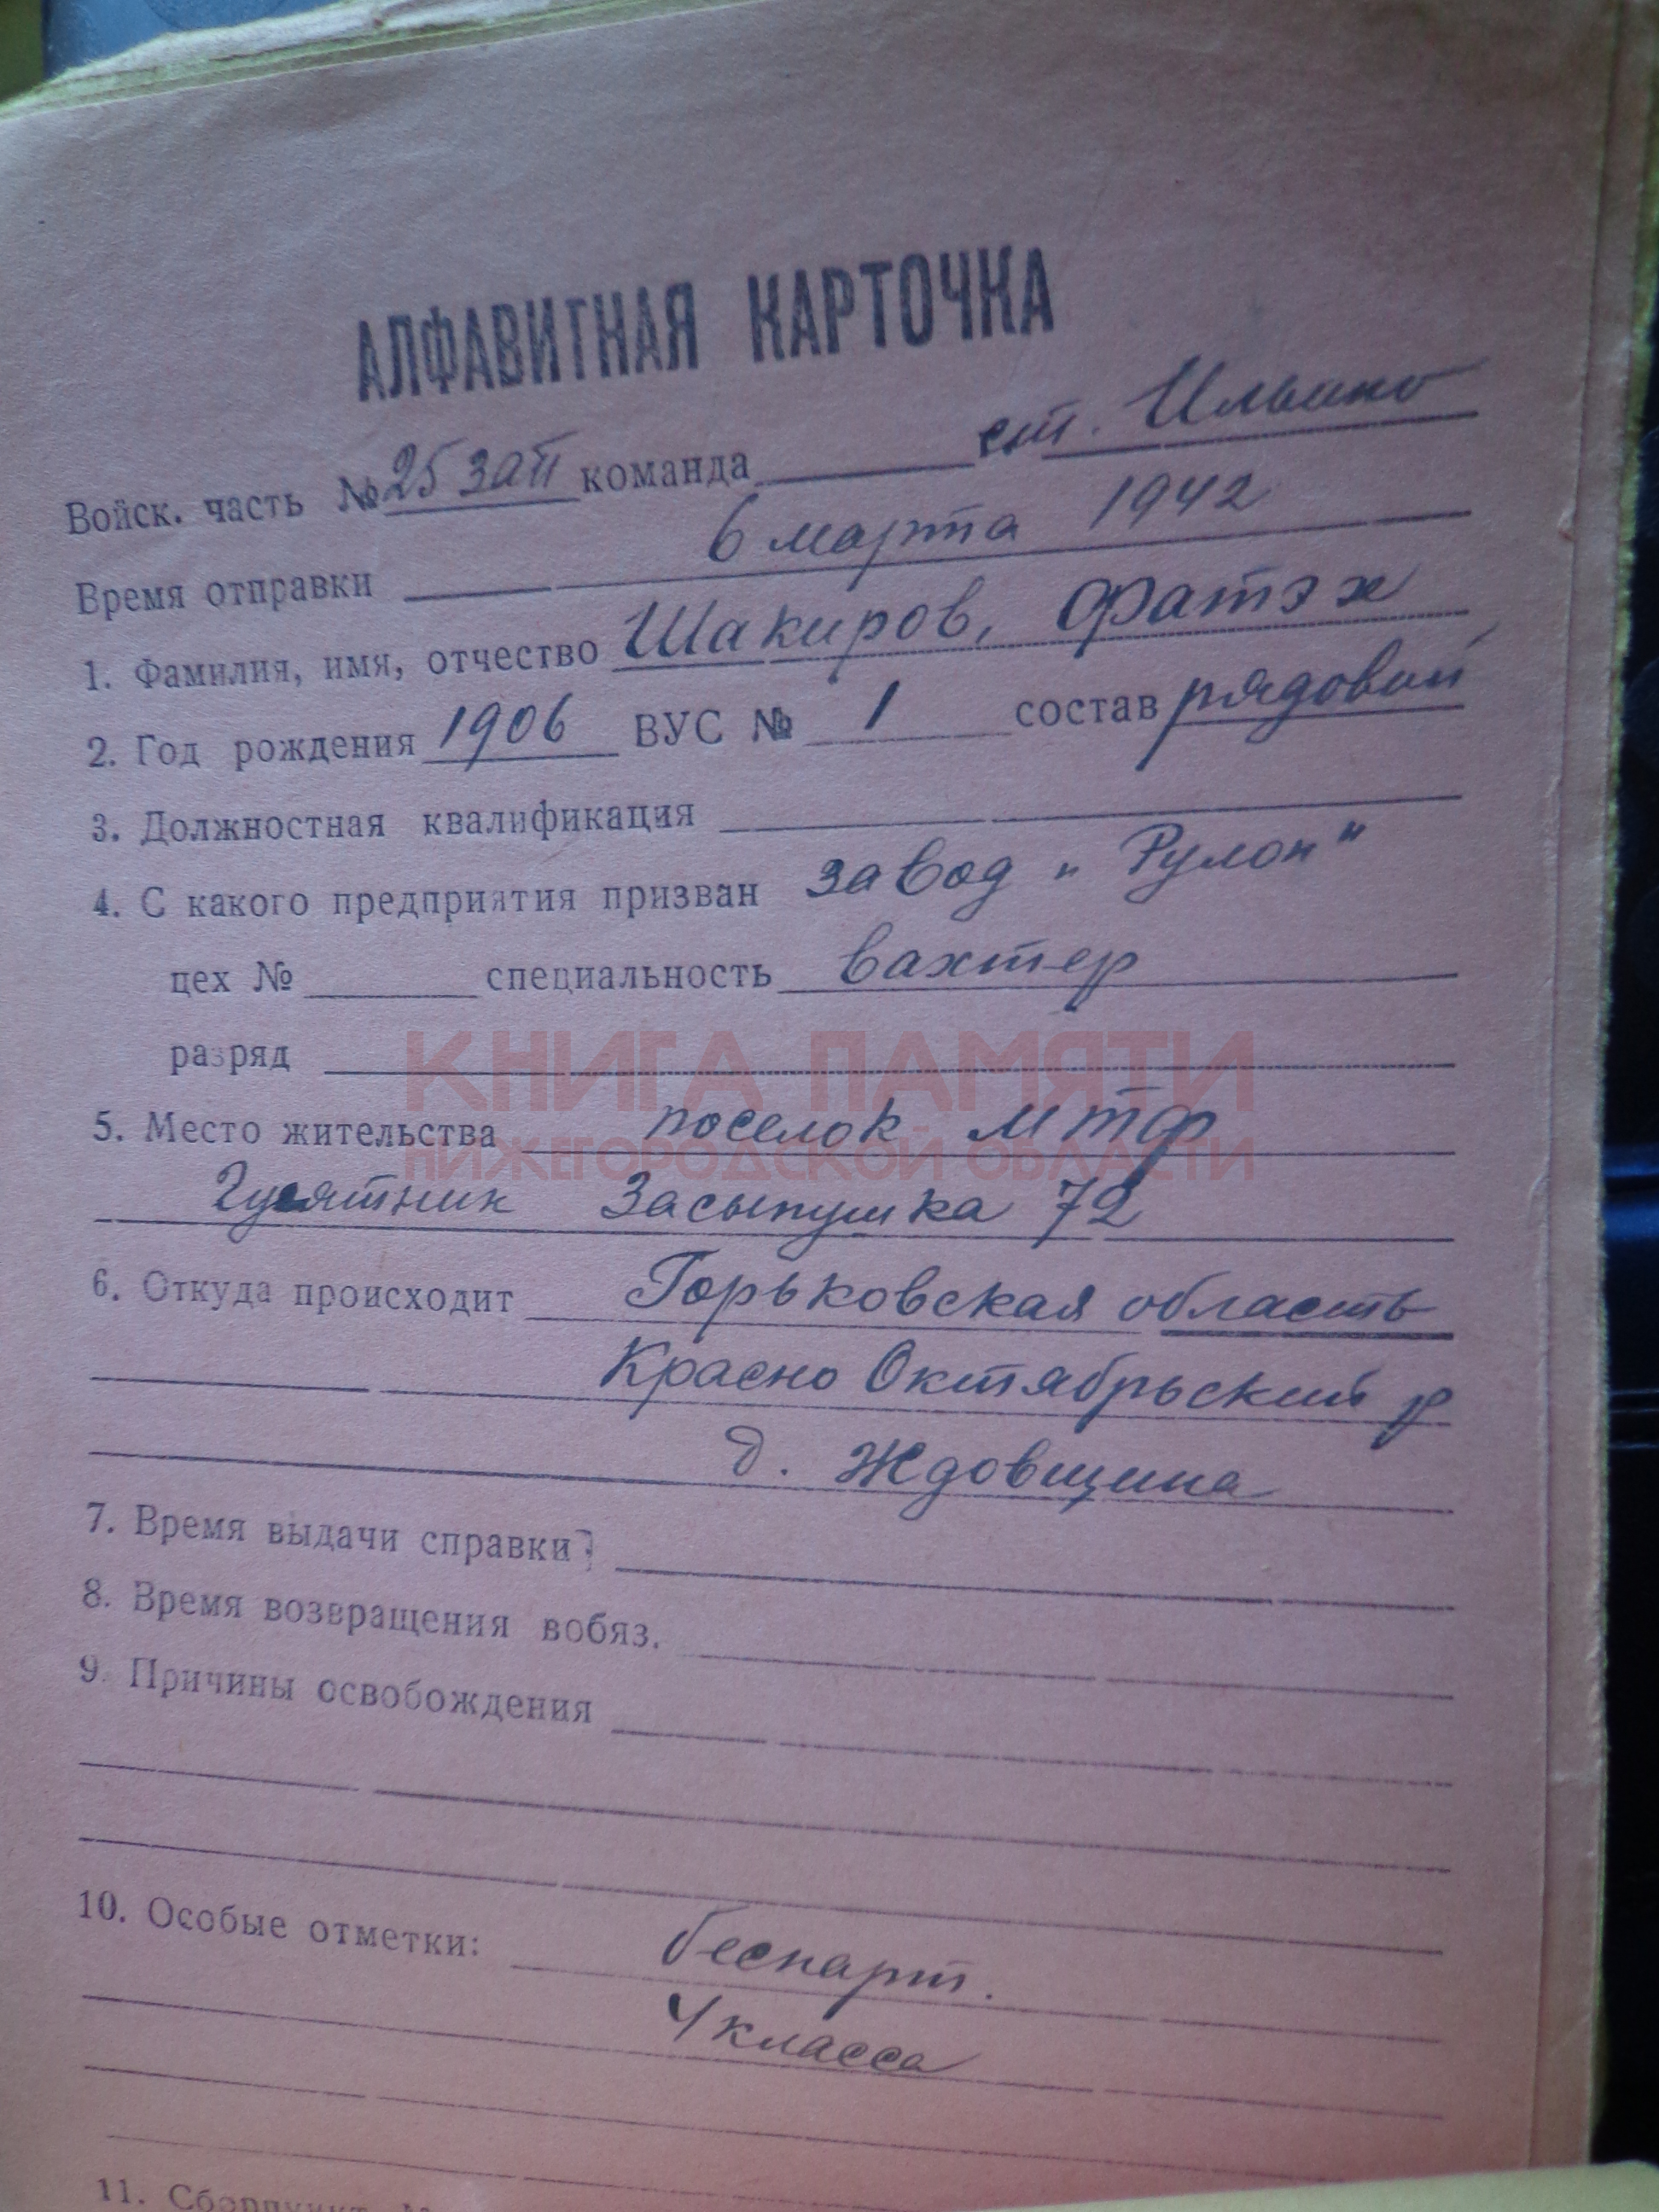 АЛФАВИТНАЯ КАРТОЧКА
Войск. часть № 25 зап команда ст. Ильино
Время отправки 6 марта 1942
1. Фамилия, имя, отчество Шакиров, Фатэх
2. Год рождения 1906 ВУС № 1 состав рядовой
3. Должностная квалификация
4. С какого предприятия призван завод „Рулон"
цех № специальность вахтер
разряд
КНИГА ПАМЯТИ
5. Место жительства поселок МТФ
НИЖЕГОРОДСКОЙ ОБЛАСТИ
Гусятник Засыпушка 72
6. Откуда происходит Горьковская область
Красно Октябрьский р
д. Ждовщина
7. Время выдачи справки
8. Время возвращения вобяз.
9. Причины освобождения
10. Особые отметки: беспарт.
4 класса
11. Сборпункт